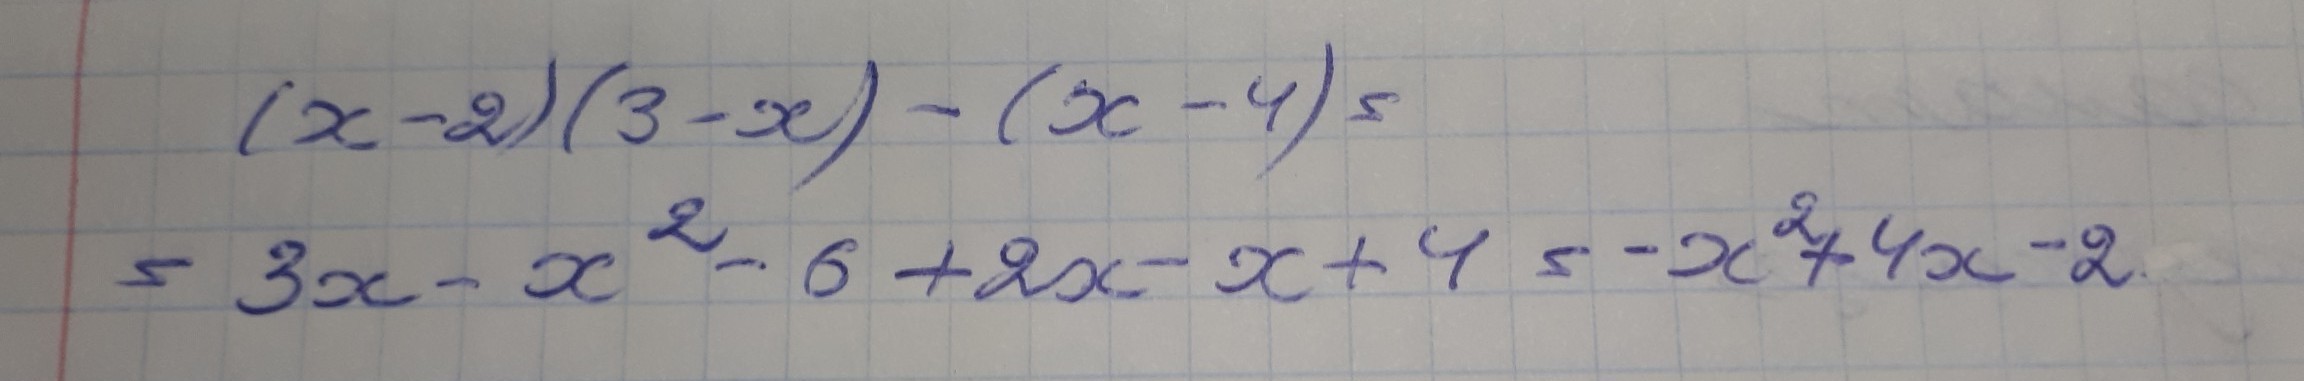 (x-2)(3-x)-(x-4)=
= 3x-x²-6+2x-x+4=-x²+4x-2.